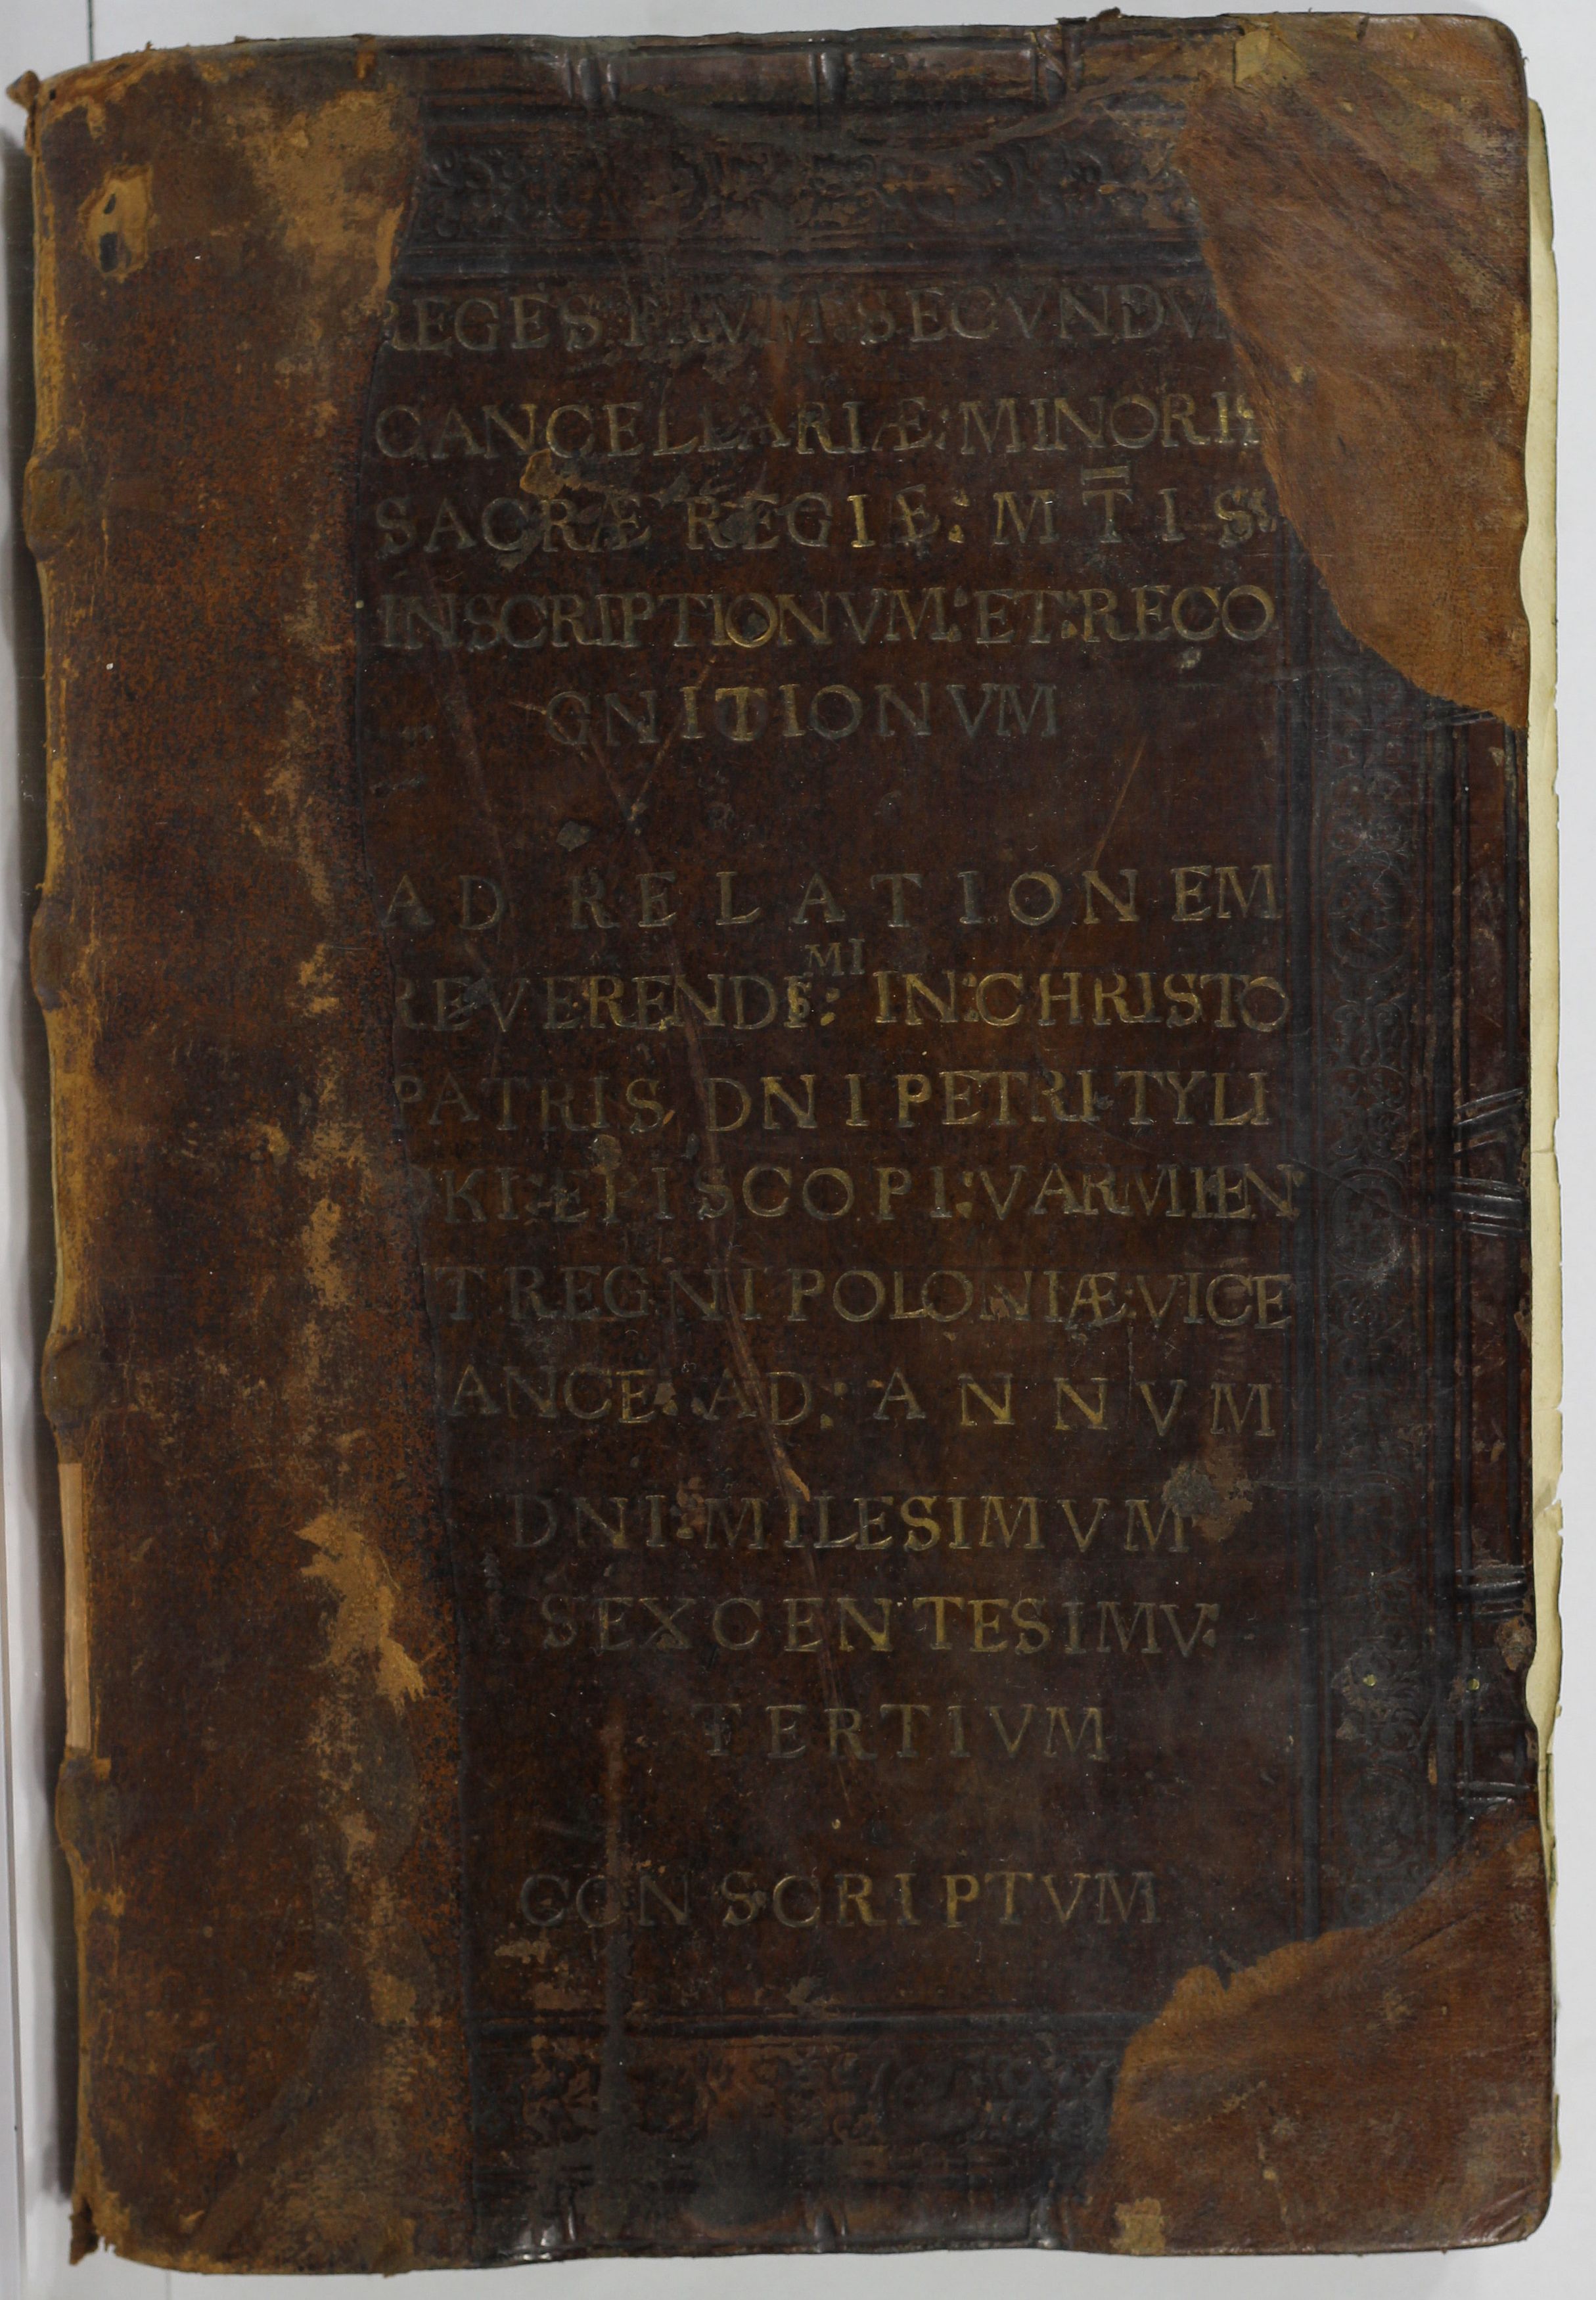 REGESTRVM SECVNDVM
CANCELLARIÆ: MINORIS
SACRÆ REGIÆ: MT̅IS:
INSCRIPTIONVM: ET: RECO
GNITIONVM
AD RELATIONEM
REVERENDS:MI IN: CHRISTO
PATRIS DNI PETRI TYLI
KI: EPISCOPI: VARMIEN
T REGNI POLONIÆ: VICE
ANCE: AD: ANNVM
DNI: MILESIMVM
SEXCENTESIMV:
TERTIVM
CONSCRIPTVM